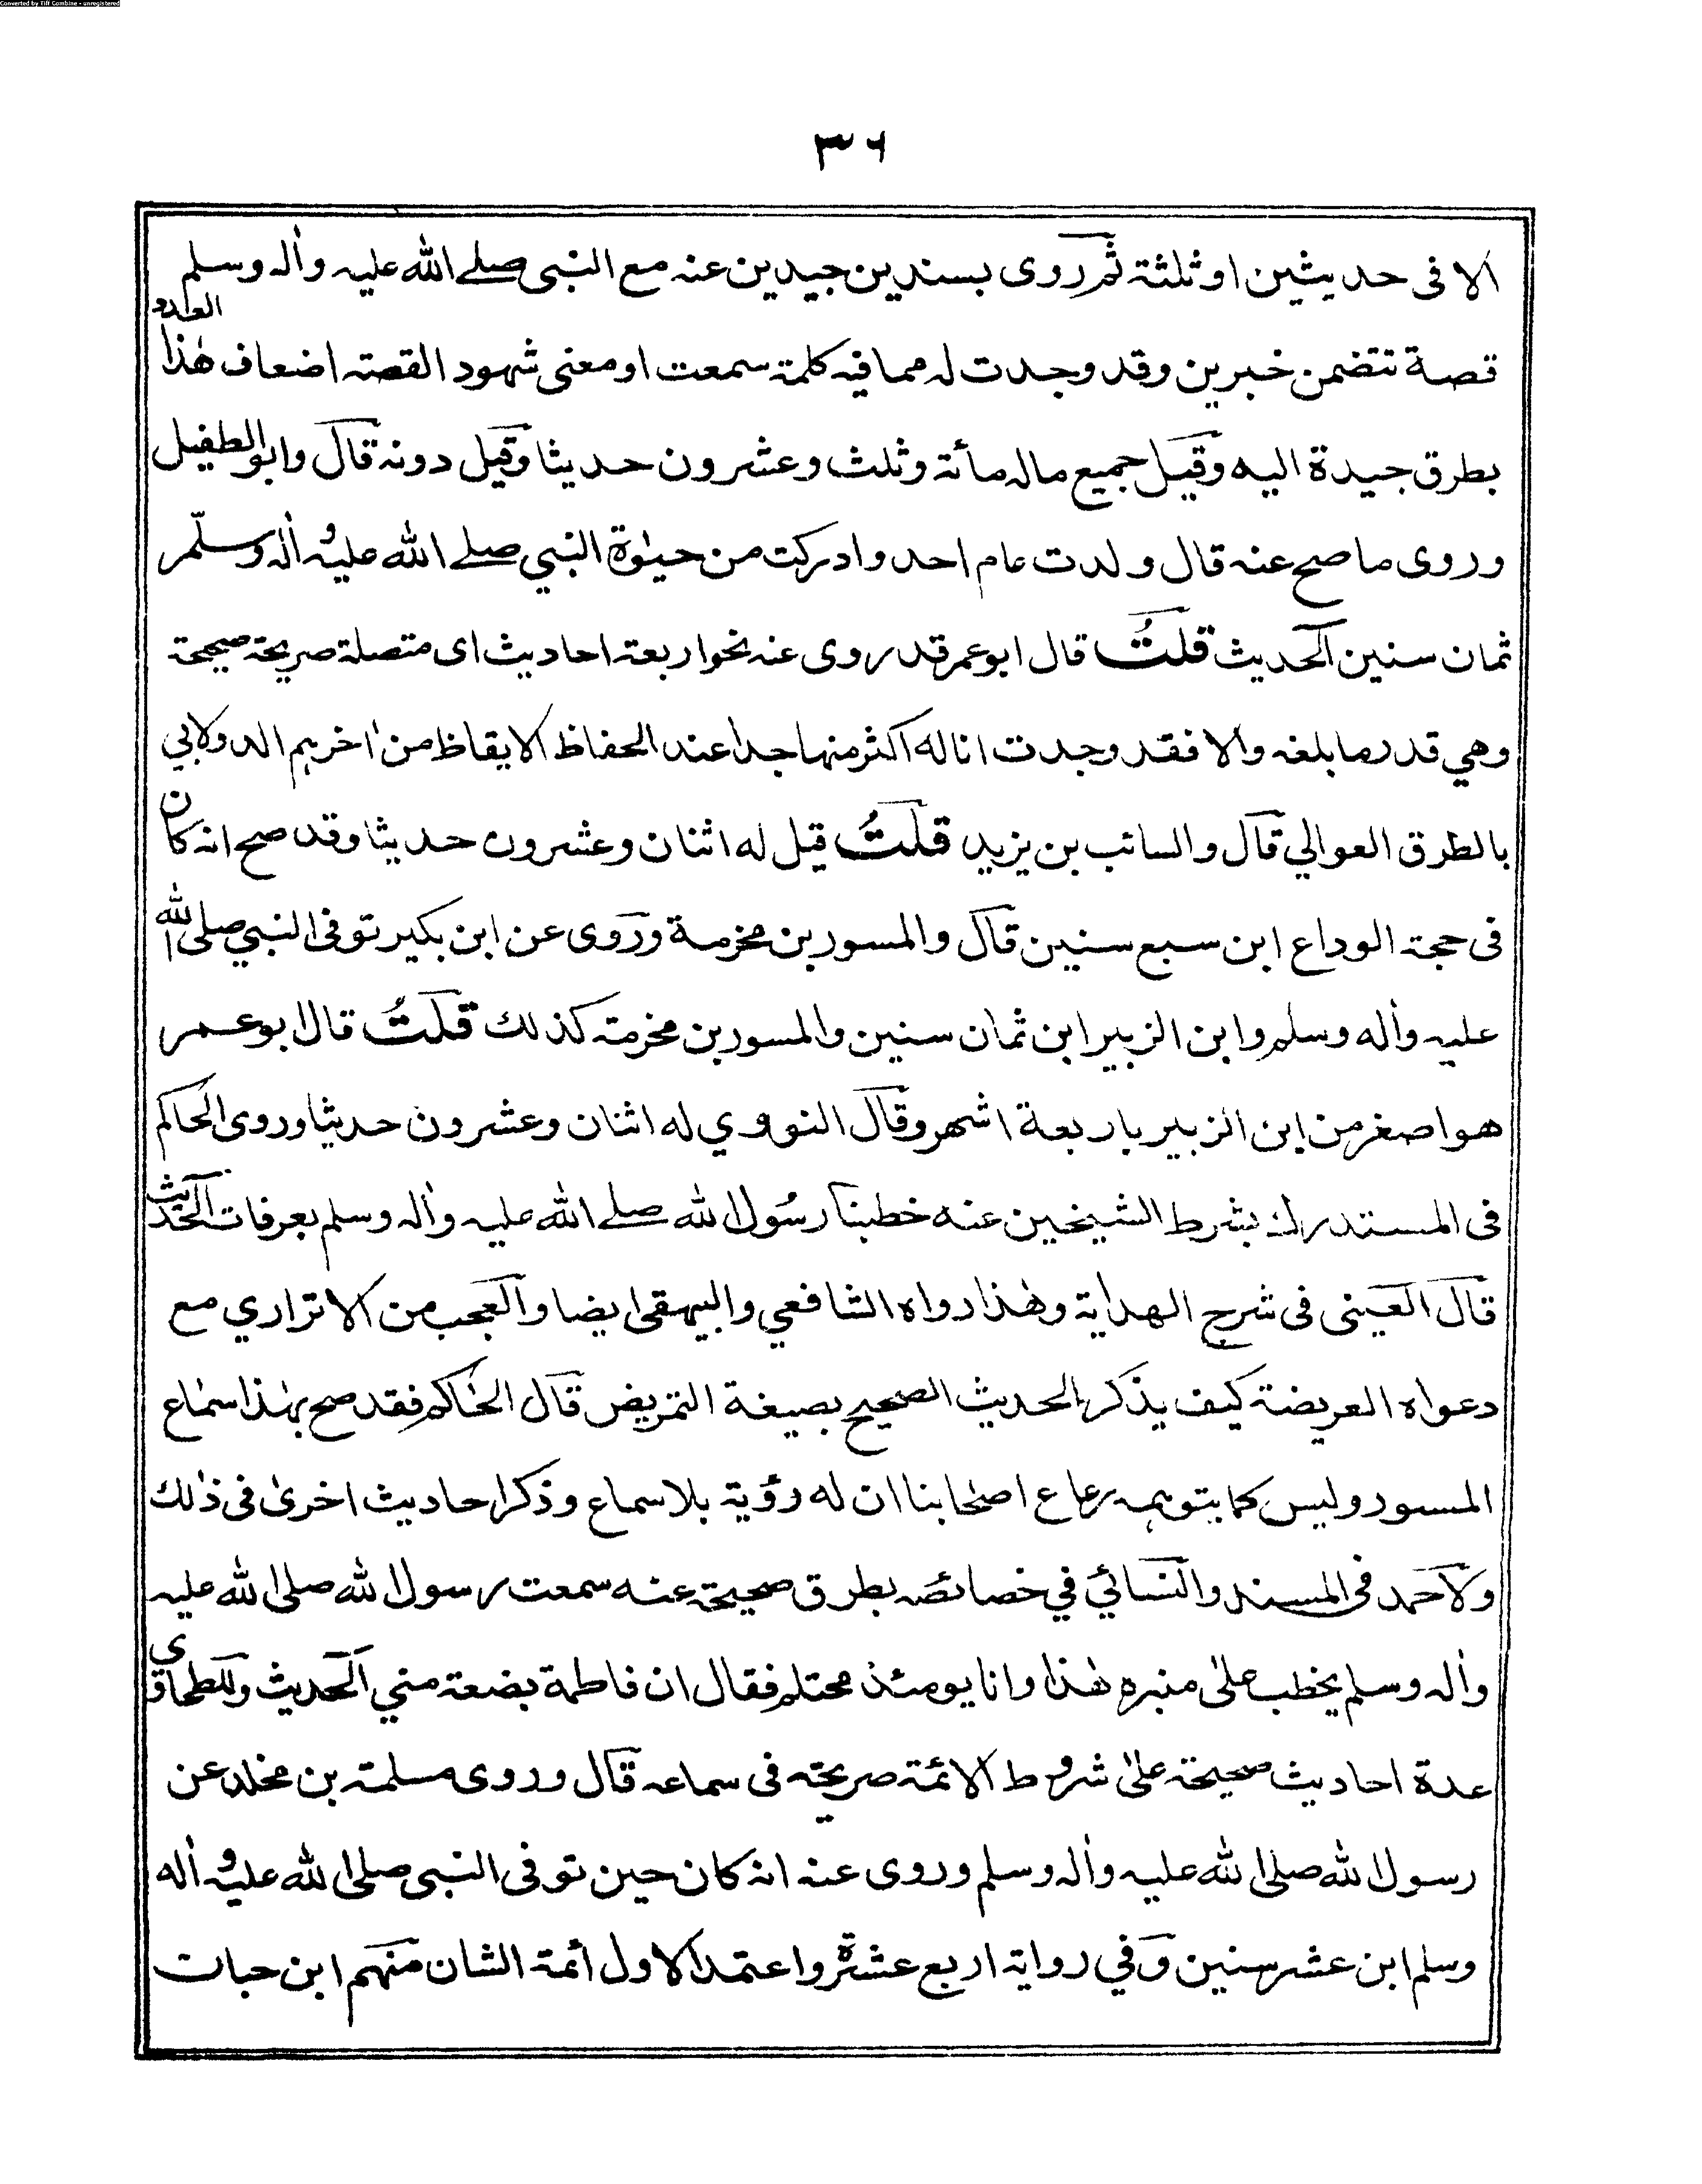 Converted by Tiff Combine - unregistered
٣٦
الا فى حديثين او ثلثة ثم روى بسندين جيدين عنه مع النبى صلے الله عليه واٰله وسلم
قصة تتضمن خبرين وقد وجدت له مما فيه كلمة سمعت او معنى شهود القصة اضعاف هٰذا العدد
بطرق جيدة اليه وقيل جميع ماله مأئة وثلث وعشرون حديثا وقيل دونه قال وابو الطفيل
وروى ما صح عنه قال ولدت عام احد وادركت من حيٰوة النبي صلے الله عليه واٰله وسلّم
ثمان سنين الحديث قلتُ قال ابو عمر قد روى عنه نحو اربعة احاديث اى متصلة صريحة صحيحة
وهي قدر ما بلغه والا فقد وجدت انا له اكثر منها جدا عند الحفاظ الايقاظ من اٰخرهم الدولابي
بالطرق العوالي قال والسائب بن يزيد قلتُ قيل له اثنان وعشرون حديثا وقد صح انه كان
فى حجة الوداع ابن سبع سنين قال والمسور بن مخرمة وروى عن ابن بكير توفى النبي صلى الله
عليه واٰله وسلم وابن الزبير ابن ثمان سنين والمسور بن مخرمة كذلك قلتُ قال ابو عمر
هو اصغر من ابن الزبير باربعة اشهر وقال النووي له اثنان وعشرون حديثا وروى الحاكم
فى المستدرك بشرط الشيخين عنه خطبنا رسُول الله صلے الله عليه واٰله وسلم بعرفات الحديث
قال العينى فى شرح الهداية وهٰذا رواه الشافعي والبيهقى ايضا والعجب من الاتراري مع
دعواه العريضة كيف يذكر الحديث الصحيح بصيغة التمريض قال الحٰاكم فقد صح بهٰذا سمٰاع
المسور وليس كما يتوهمه رعاع اصحٰابنا ان له رؤية بلا سماع وذكر احاديث اخرىٰ فى ذٰلك
ولاحمد فى المسند والنسائي في خصائصه بطرق صحيحة عنه سمعت رسول الله صلى الله عليه
واٰله وسلم يخطب علىٰ منبره هٰذا وانا يومئذ محتلم فقال ان فاطمة بضعة مني الحديث وللطحاوى
عدة احاديث صحيحة علىٰ شروط الائمة صريحة فى سماعه قال وروى مسلمة بن مخلد عن
رسول الله صلى الله عليه واٰله وسلم وروى عنه انه كان حين توفى النبى صلى الله عليه واٰله
وسلم ابن عشر سنين وفي رواية اربع عشرة واعتمد الاول أئمة الشان منهم ابن حبان